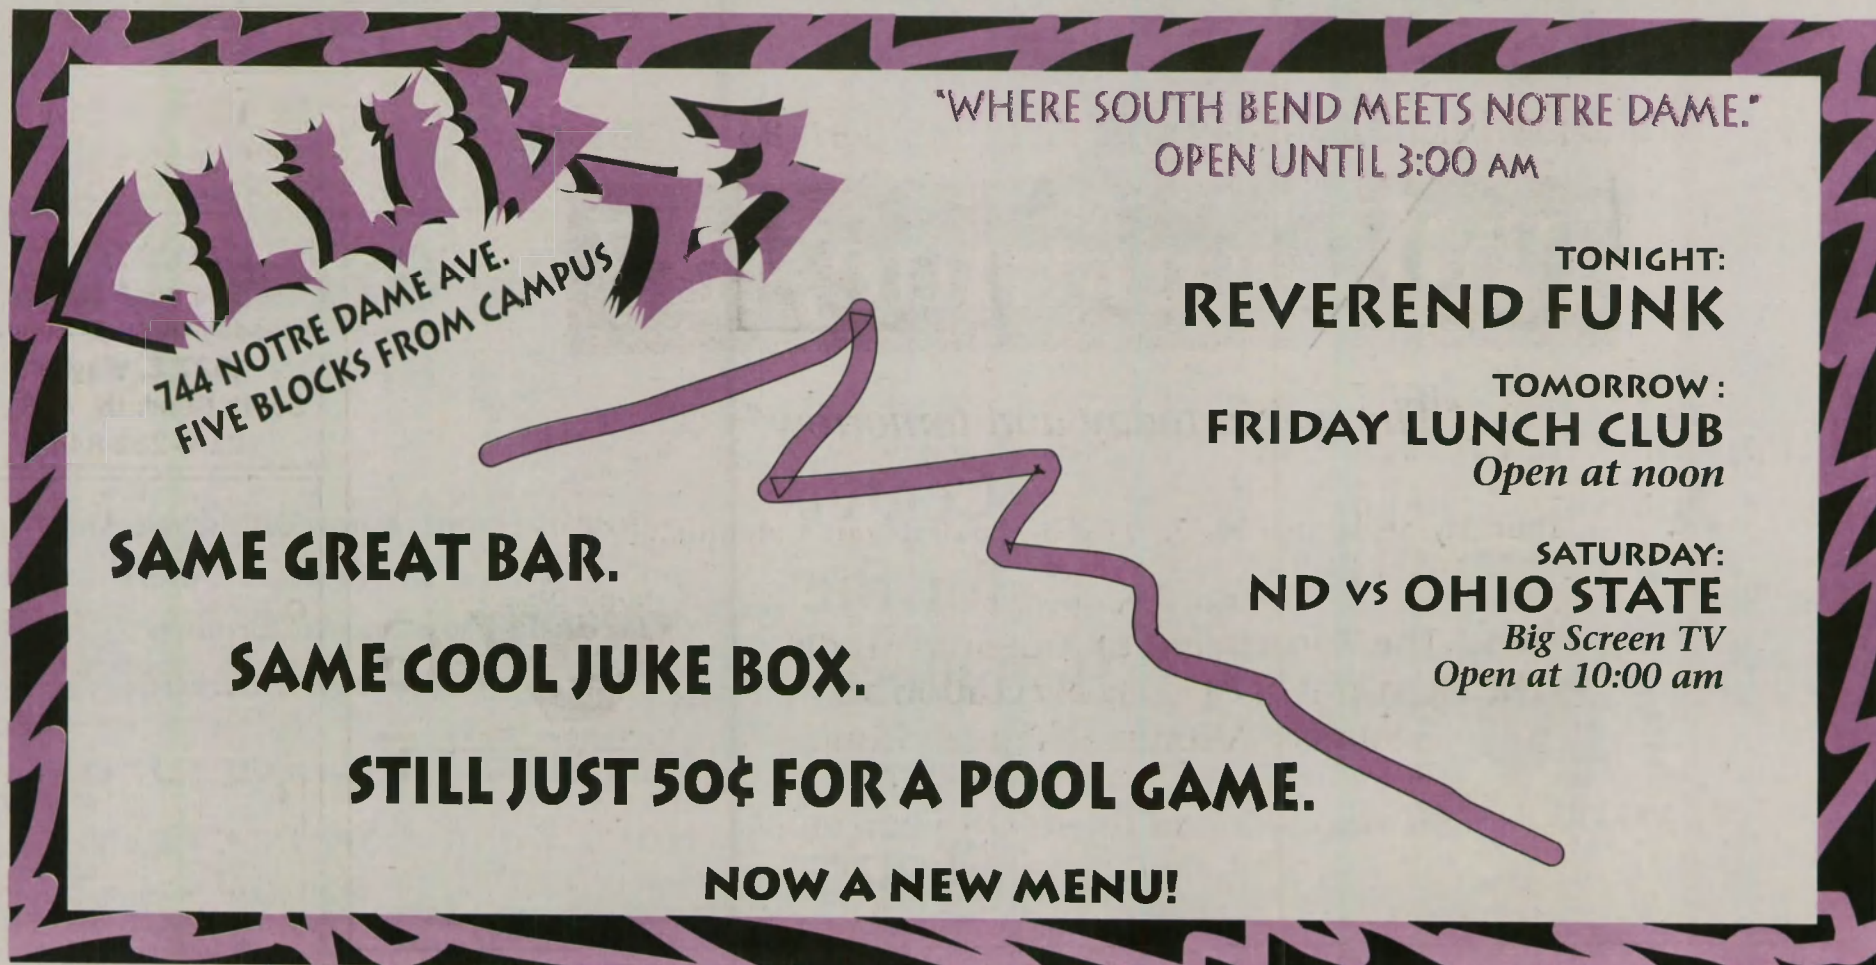 CLUB 23
744 NOTRE DAME AVE.
FIVE BLOCKS FROM CAMPUS
"WHERE SOUTH BEND MEETS NOTRE DAME."
OPEN UNTIL 3:00 AM
TONIGHT:
REVEREND FUNK
TOMORROW :
FRIDAY LUNCH CLUB
Open at noon
SATURDAY:
ND vs OHIO STATE
Big Screen TV
Open at 10:00 am
SAME GREAT BAR.
SAME COOL JUKE BOX.
STILL JUST 50¢ FOR A POOL GAME.
NOW A NEW MENU!